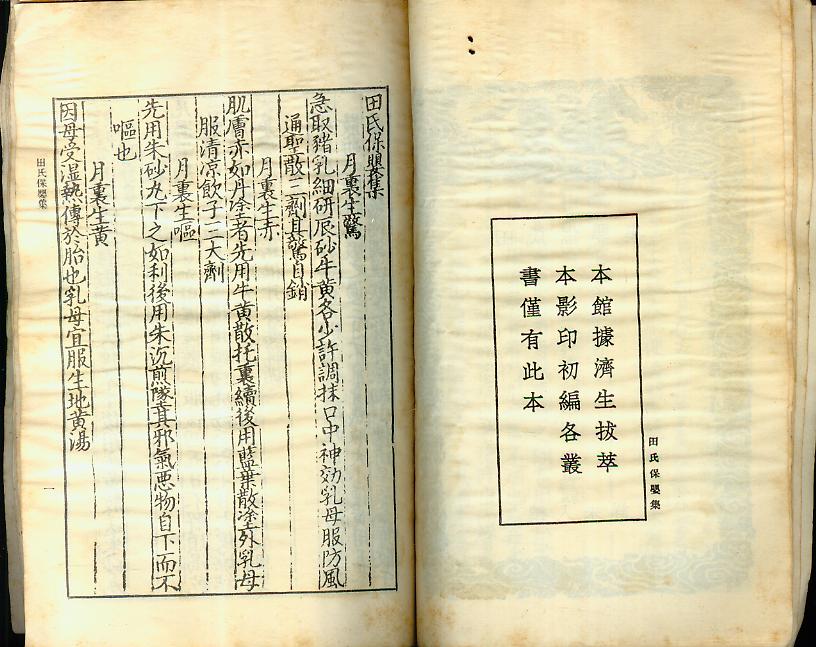 本館據濟生拔萃
本影印初編各叢
書僅有此本
田氏保嬰集
田氏保嬰集
月裏生驚
急取豬乳細研辰砂牛黃各少許調抹口中神効乳母服防風
通聖散三劑其驚自銷
月裏生赤
肌膚赤如丹塗者先用牛黃散托裏續後用藍葉散塗外乳母
服清凉飲子三大劑
月裏生嘔
先用朱砂丸下之如利後用朱沉煎墜其邪氣悪物自下而不
嘔也
月裏生黃
因母受湿熱傳於胎也乳母宜服生地黃湯
田氏保嬰集
一